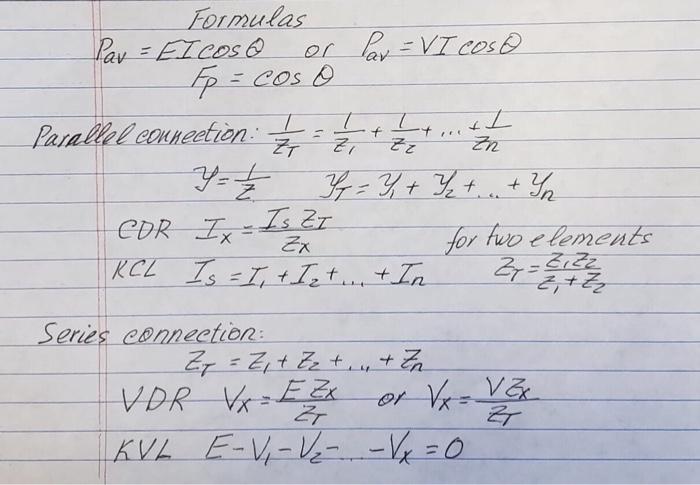 Formulas
Pav = EI cos θ or Pav = VI cos θ
Fp = cos θ
Parallel connection: 1/ZT = 1/Z1 + 1/Z2 + ... + 1/Zn
Y = 1/Z YT = Y1 + Y2 + ... + Yn
CDR Ix = Is ZT / Zx
for two elements
KCL Is = I1 + I2 + ... + In ZT = Z1Z2 / Z1 + Z2
Series connection:
ZT = Z1 + Z2 + ... + Zn
VDR Vx = E Zx / ZT or Vx = V Zx / ZT
KVL E - V1 - V2 - ... - Vx = 0